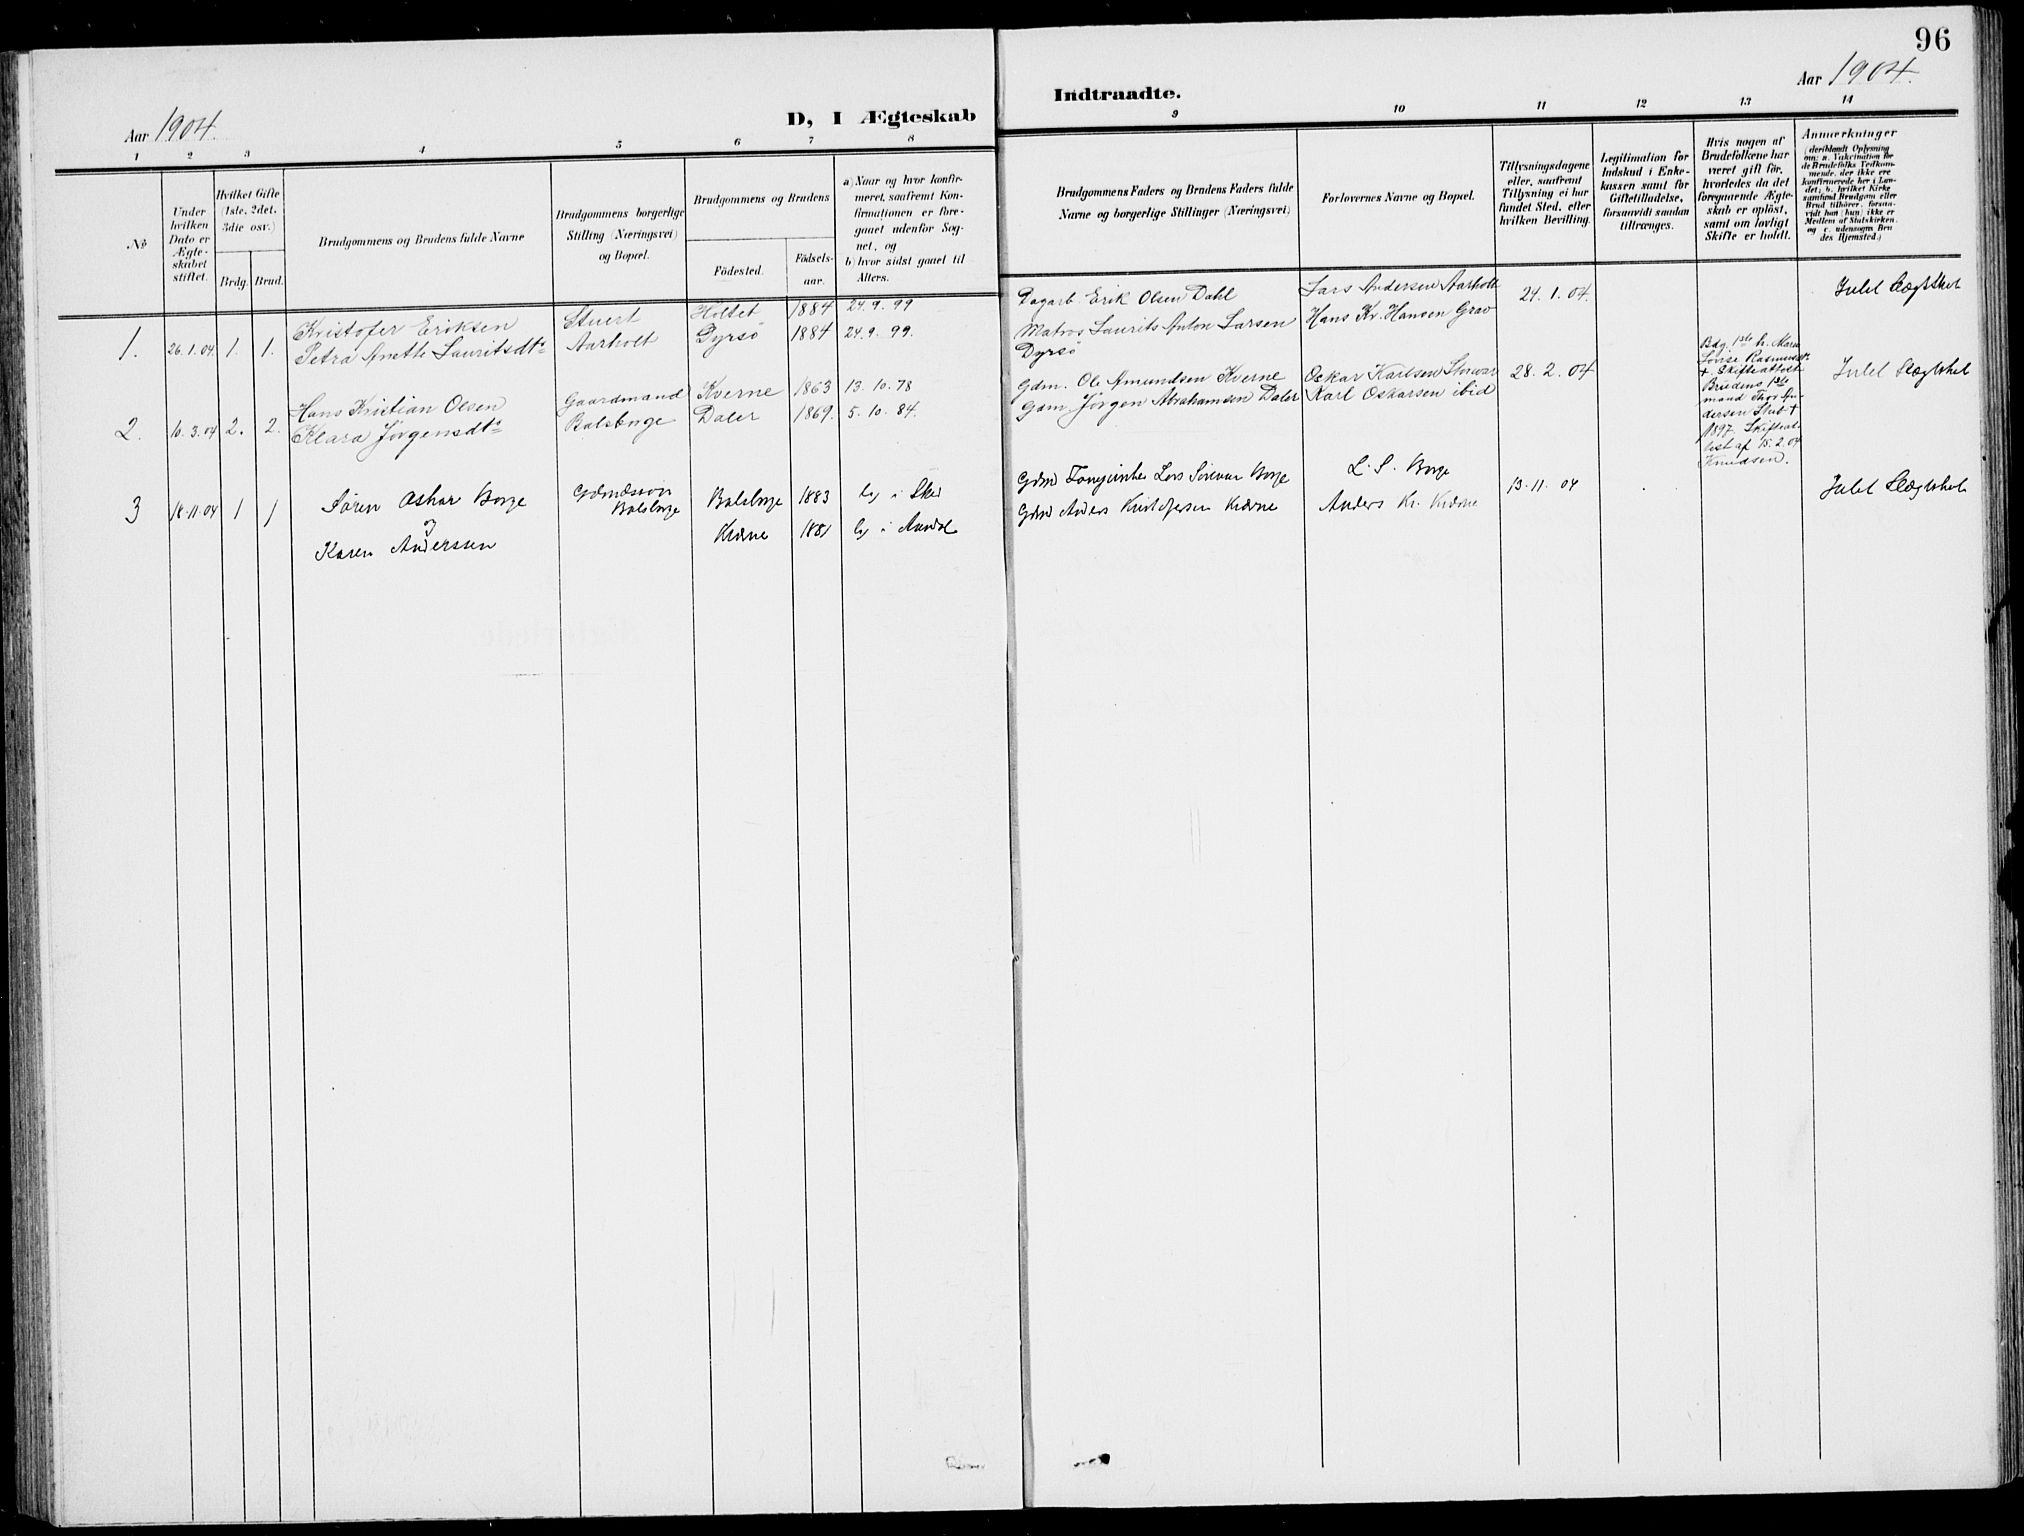 96
Aar 1904.
D, I Ægteskab
Indtraadte.
Aar 1904.
1 2 3 4 5 6 7 8
9 10 11 12 13 14
No
Under hvilken Dato er Ægte-skabet stiftet.
Hvilket Gifte (1ste, 2det, 3die osv.)
Brdg. Brud.
Brudgommens og Brudens fulde Navne
Brudgommens borgerlige Stilling (Næringsvei) og Bopæl.
Brudgommens og Brudens
Fødested.
Fødsels-aar.
a) Naar og hvor konfir-meret, saafremt Kon-firmationen er fore-gaaet udenfor Sog-net, og
b) hvor sidst gaaet til Alters.
Brudgommens Faders og Brudens Faders fulde Navne og borgerlige Stillinger (Næringsvei)
Forlovernes Navne og Bopæl.
Tillysningsdagene eller, saafremt Tillysning ei har fundet Sted, efter hvilken Bevilling.
Legitimation for Indskud i Enke-kassen samt for Giftetilladelse, forsaavidt saadan tiltrænges.
Hvis nogen af Brudefolkene har været gift før, hvorledes da det foregaaende Ægte-skab er opløst, samt om lovligt Skifte er holdt.
Anmærkninger (deriblandt Oplysning om: a. Vakcination for de Brudefolks Vedkom-mende, der ikke ere konfirmerede her i Lan-det; b. hvilket Kirke-samfund Brudgom eller Brud tilhører, forsaa-vidt han (hun) ikke er Medlem af Statskirken, og c. udensogns Bru-des Hjemsted.)
1. 26.1.04. 1. 1. Kristofer Eriksen Stuert Holtet 1884 24.9.99
Petra Anette Lauritsdtr Aarholt Dyrsø 1884 24.9.99.
Dagarb. Erik Olsen Dahl Lars Andersen Aarholt 24.1.04. Intet Slægtskab
Matros Laurits Anton Larsen Hans Kr. Hansen Grav
Dyrsø
2. 10.3.04 2. 2. Hans Kristian Olsen Gaardmand Kverne 1863 13.10.78
Klara Jørgensdtr Balsberge Daler 1869. 5.10.84.
Gdm. Ole Amundsen Kverne Oskar Karlsen 28.2.04 Intet Slægtskab
Gdm Jørgen Abrahamsen Daler Karl Oskarsen ibid
Bdg. 1ste h. Maren
Lovise Rasmusdtr
+. Skifteattest
Brudens 1ste
mand Thor An-
dersen Stub +
1897. Skifteat-
test af 15.2.04
Knudsen.
3 18.11.04 1 1 Søren Oskar Borge Gdmdssøn Balsborge 1883
Balsborge
og
Karen Anderssen Kværne 1881
Gdm Lars Borge L. S. Borge 13.11.04 Intet Slægtskab
Gdm Anders Kristofersen Kværne Anders Kr. Kværne